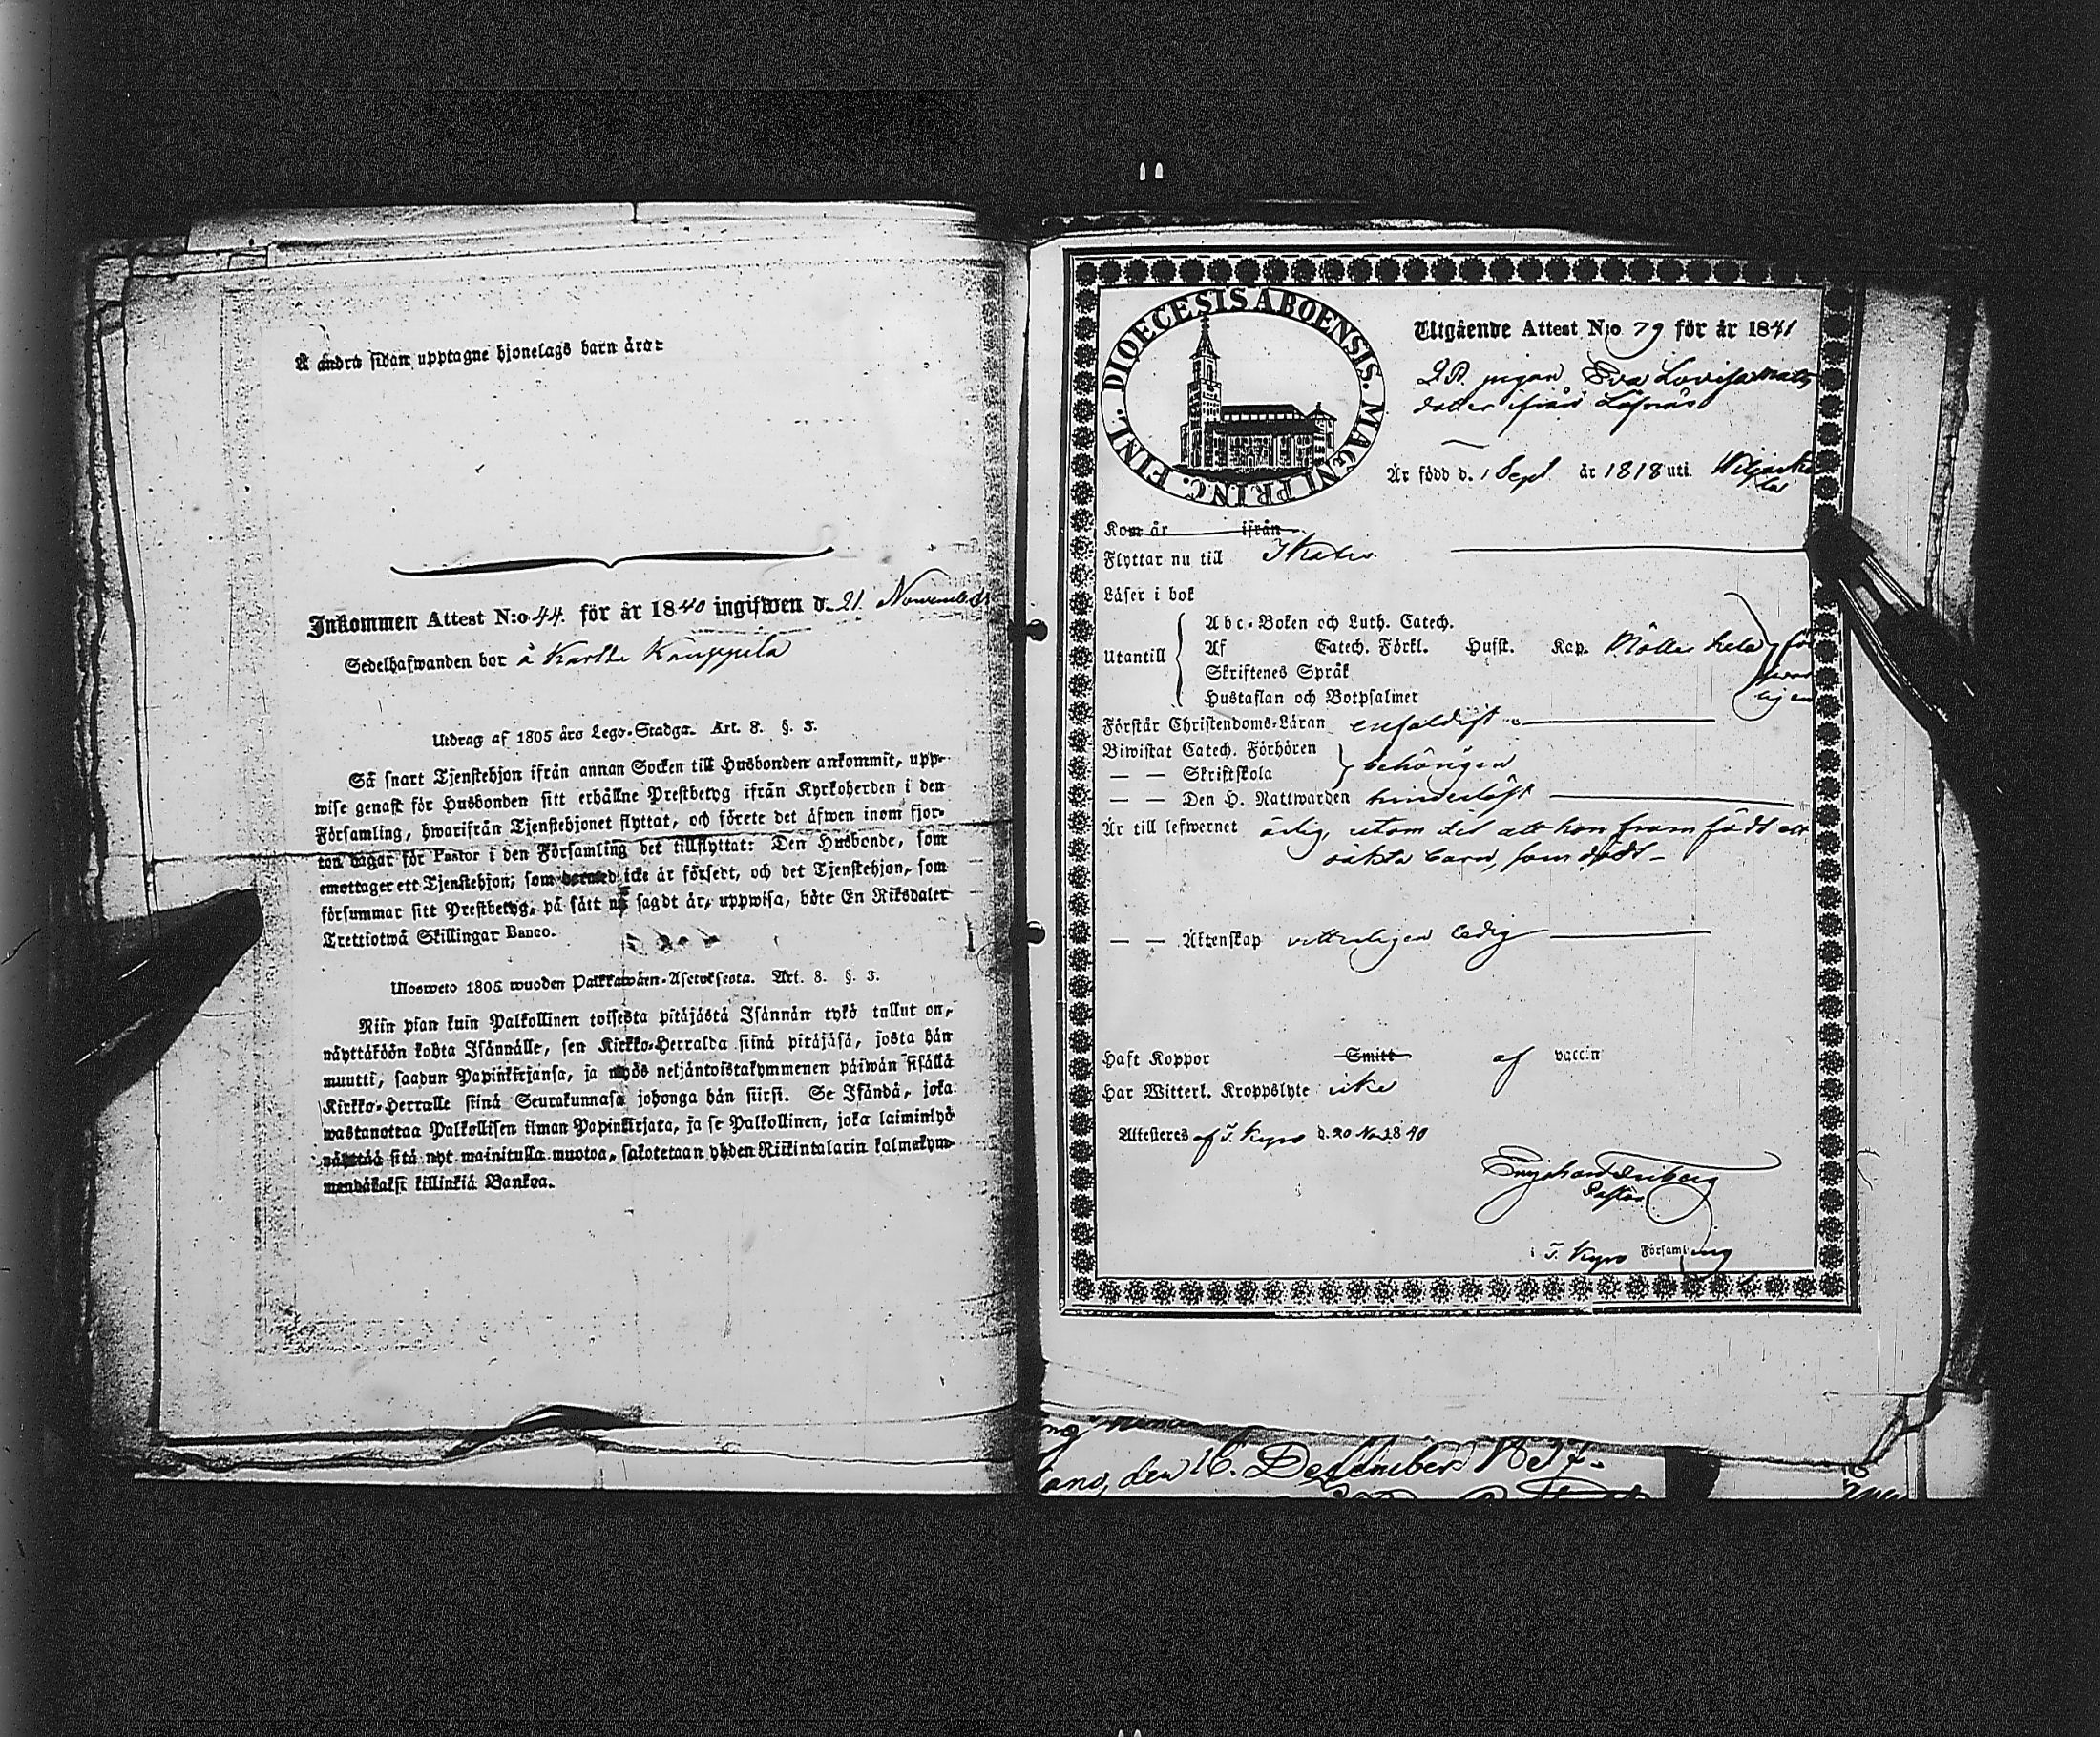 Å andra sidan upptagne hjonelags barn äro:
Inkommen Attest N:o 44. för år 1840 ingifwen d. 21 November
Sedelhafwanden bor å Kartte Kauppila
Utdrag af 1805 års Lego-Stadga. Art. 8. §. 3.
Så snart Tjenstehjon ifrån annan Socken till Husbonden ankommit, upp-
wise genast för Husbonden sitt erhållne Prestbetyg ifrån Kyrkoherden i den
Församling, hwarifrån Tjenstehjonet flyttat, och förete det äfwen inom fjor-
ton dagar för Pastor i den Församling det tillflyttat: Den Husbonde, som
emottager ett Tjenstehjon, som dermed icke är försedt, och det Tjenstehjon, som
försummar sitt Prestbetyg, på sätt nu sagdt är, uppwisa, böte En Riksdaler
Trettiotwå Skillingar Banco.
Ulosweto 1805 wuoden Palkkawäen-Asetuksesta. Art. 8. §. 3.
Niin pian kuin Palkollinen toisesta pitäjästä Isännän tykö tullut on,
näyttäköön kohta Isännälle, sen Kirkko-Herralda siinä pitäjäsä, josta hän
muutti, saadun Papinkirjansa, ja myös neljäntoistakymmenen päiwän sisällä
Kirkko-Herralle siinä Seurakunnasa johonga hän siirsi. Se Isändä, joka
wastanottaa Palkollisen ilman Papinkirjata, ja se Palkollinen, joka laiminlyö
näyttää sitä nyt mainitulla muotoa, sakotetaan yhden Riikintalarin kolmekym-
mendäkaksi killinkiä Bankoa.
DIOECESIS ABOENSIS. MAGNI PRINC. FINL.
Utgående Attest N:o 79 för år 1841
pigan Eva Lovisa Mats
dotter ifrån Löfnäs
Är född d. 1 Sept år 1818 uti
Kom år ifrån
Flyttar nu till Ikalis
Läser i bok
Abc-Boken och Luth. Catech.
Utantill Af Catech. Förkl. Husst. Kap. Möller hela för
Skriftenes Språk
Hustaflan och Botpsalmer
Förstår Christendoms-Läran enfaldigt
Biwistat Catech. Förhören
— — Skriftskola behörigen
— — Den H. Nattwarden hinderlöst
Är till lefwernet ärlig, utom det att hon framfödt ett
oäkta barn, som dödt
— — Äktenskap vitterligen ledig
Haft Koppor Smitt af vaccin
Har Witterl. Kroppslyte icke
Attesteras af T. Kyro d. 20 Nov 1840
Pastor
i T. Kyro Församling
den 16. December 1837.